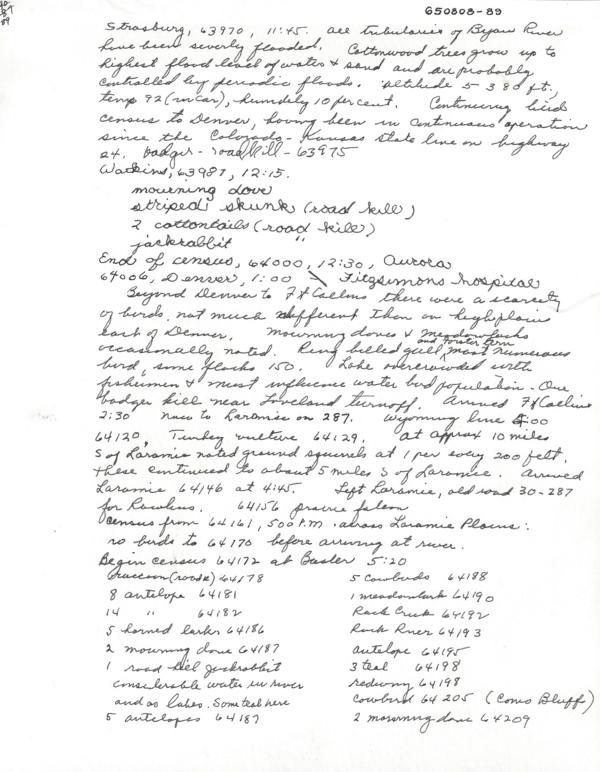 650808-89
Strasburg, 63970, 11:45. All tributaries of Bijou River
have been severly flooded. Cottonwood trees grow up to
highest flood level of water & sand and are probably
controlled by periodic floods. Altitude 5380 ft.,
temp 92 (in car), humidity 10 per cent. Continuing bird
census to Denver, having been in continuous operation
since the Colorado-Kansas state line on highway
24. badger - roadkill - 63975
Watkins, 63987, 12:15.
mourning dove
striped skunk (road kill)
2 cottontails (road kill)
jackrabbit "
End of census, 64000, 12:30, Aurora
64006, Denver, 1:00 Fitzsimons hospital
Beyond Denver to Ft Collins there were a scarcity
of birds, not much different than on high plain
east of Denver. Mourning doves & Meadowlarks
occasionally noted. Ring billed gull and Forster tern most numerous
bird, some flocks 150. Lake overcrowded with
fishermen & must influence water bird population - One
badger kill near Loveland turnoff. Arrived Ft Collins
2:30 now to Laramie on 287. Wyoming line 4:00
64120, Turkey vulture 64129. at approx 10 miles
S of Laramie noted ground squirrels at 1 per every 200 feet.
these continued to about 5 miles S of Laramie. Arrived
Laramie 64146 at 4:45. Left Laramie, old road 30-287
for Rawlins. 64156 prairie falcon
Census from 64161, 500 P.M. across Laramie Plains:
no birds to 64170 before arriving at river.
Begin census 64172 at Bosler 5:20
Raccoon (roadk) 64178
8 antelope 64181
14 " 64182
5 horned larks 64186
2 mourning dove 64187
1 road kill jackrabbit
considerable water in river
and as lakes. Some teal here
5 antelopes 64187
5 cowbirds 64188
1 meadowlark 64190
Rock Creek 64192
Rock River 64193
antelope 64195
3 teal 64198
redwing 64198
Cowbird 64205 (Como Bluff)
2 mourning dove 64209